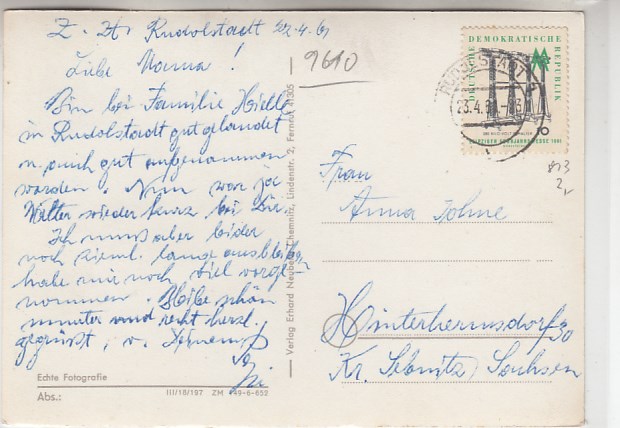 Z. Zt. Rudolstadt 22.4.61
Liebe Mama!
Bin bei Familie Hielle
in Rudolstadt gut gelandet
u. auch gut aufgenommen
worden. Nun war ja
Walter wieder kurz bei Dir.
Ich muß aber leider
noch zieml. lange ausbleiben
habe mir noch viel vorge-
nommen. Bleibe schön
munter und recht herzl.
gegrüßt, v.
Echte Fotografie
Abs.:
III/18/197 ZM 449-6-652
Verlag Erhard Neubert, Chemnitz, Lindenstr. 2, Fernruf 41305
9610
DEUTSCHE DEMOKRATISCHE REPUBLIK
10
RUDOLSTADT
23.4.61
813
2,-
Frau
Anna Hohne
Hinterhermsdorf 30
Kr. Sebnitz Sachsen